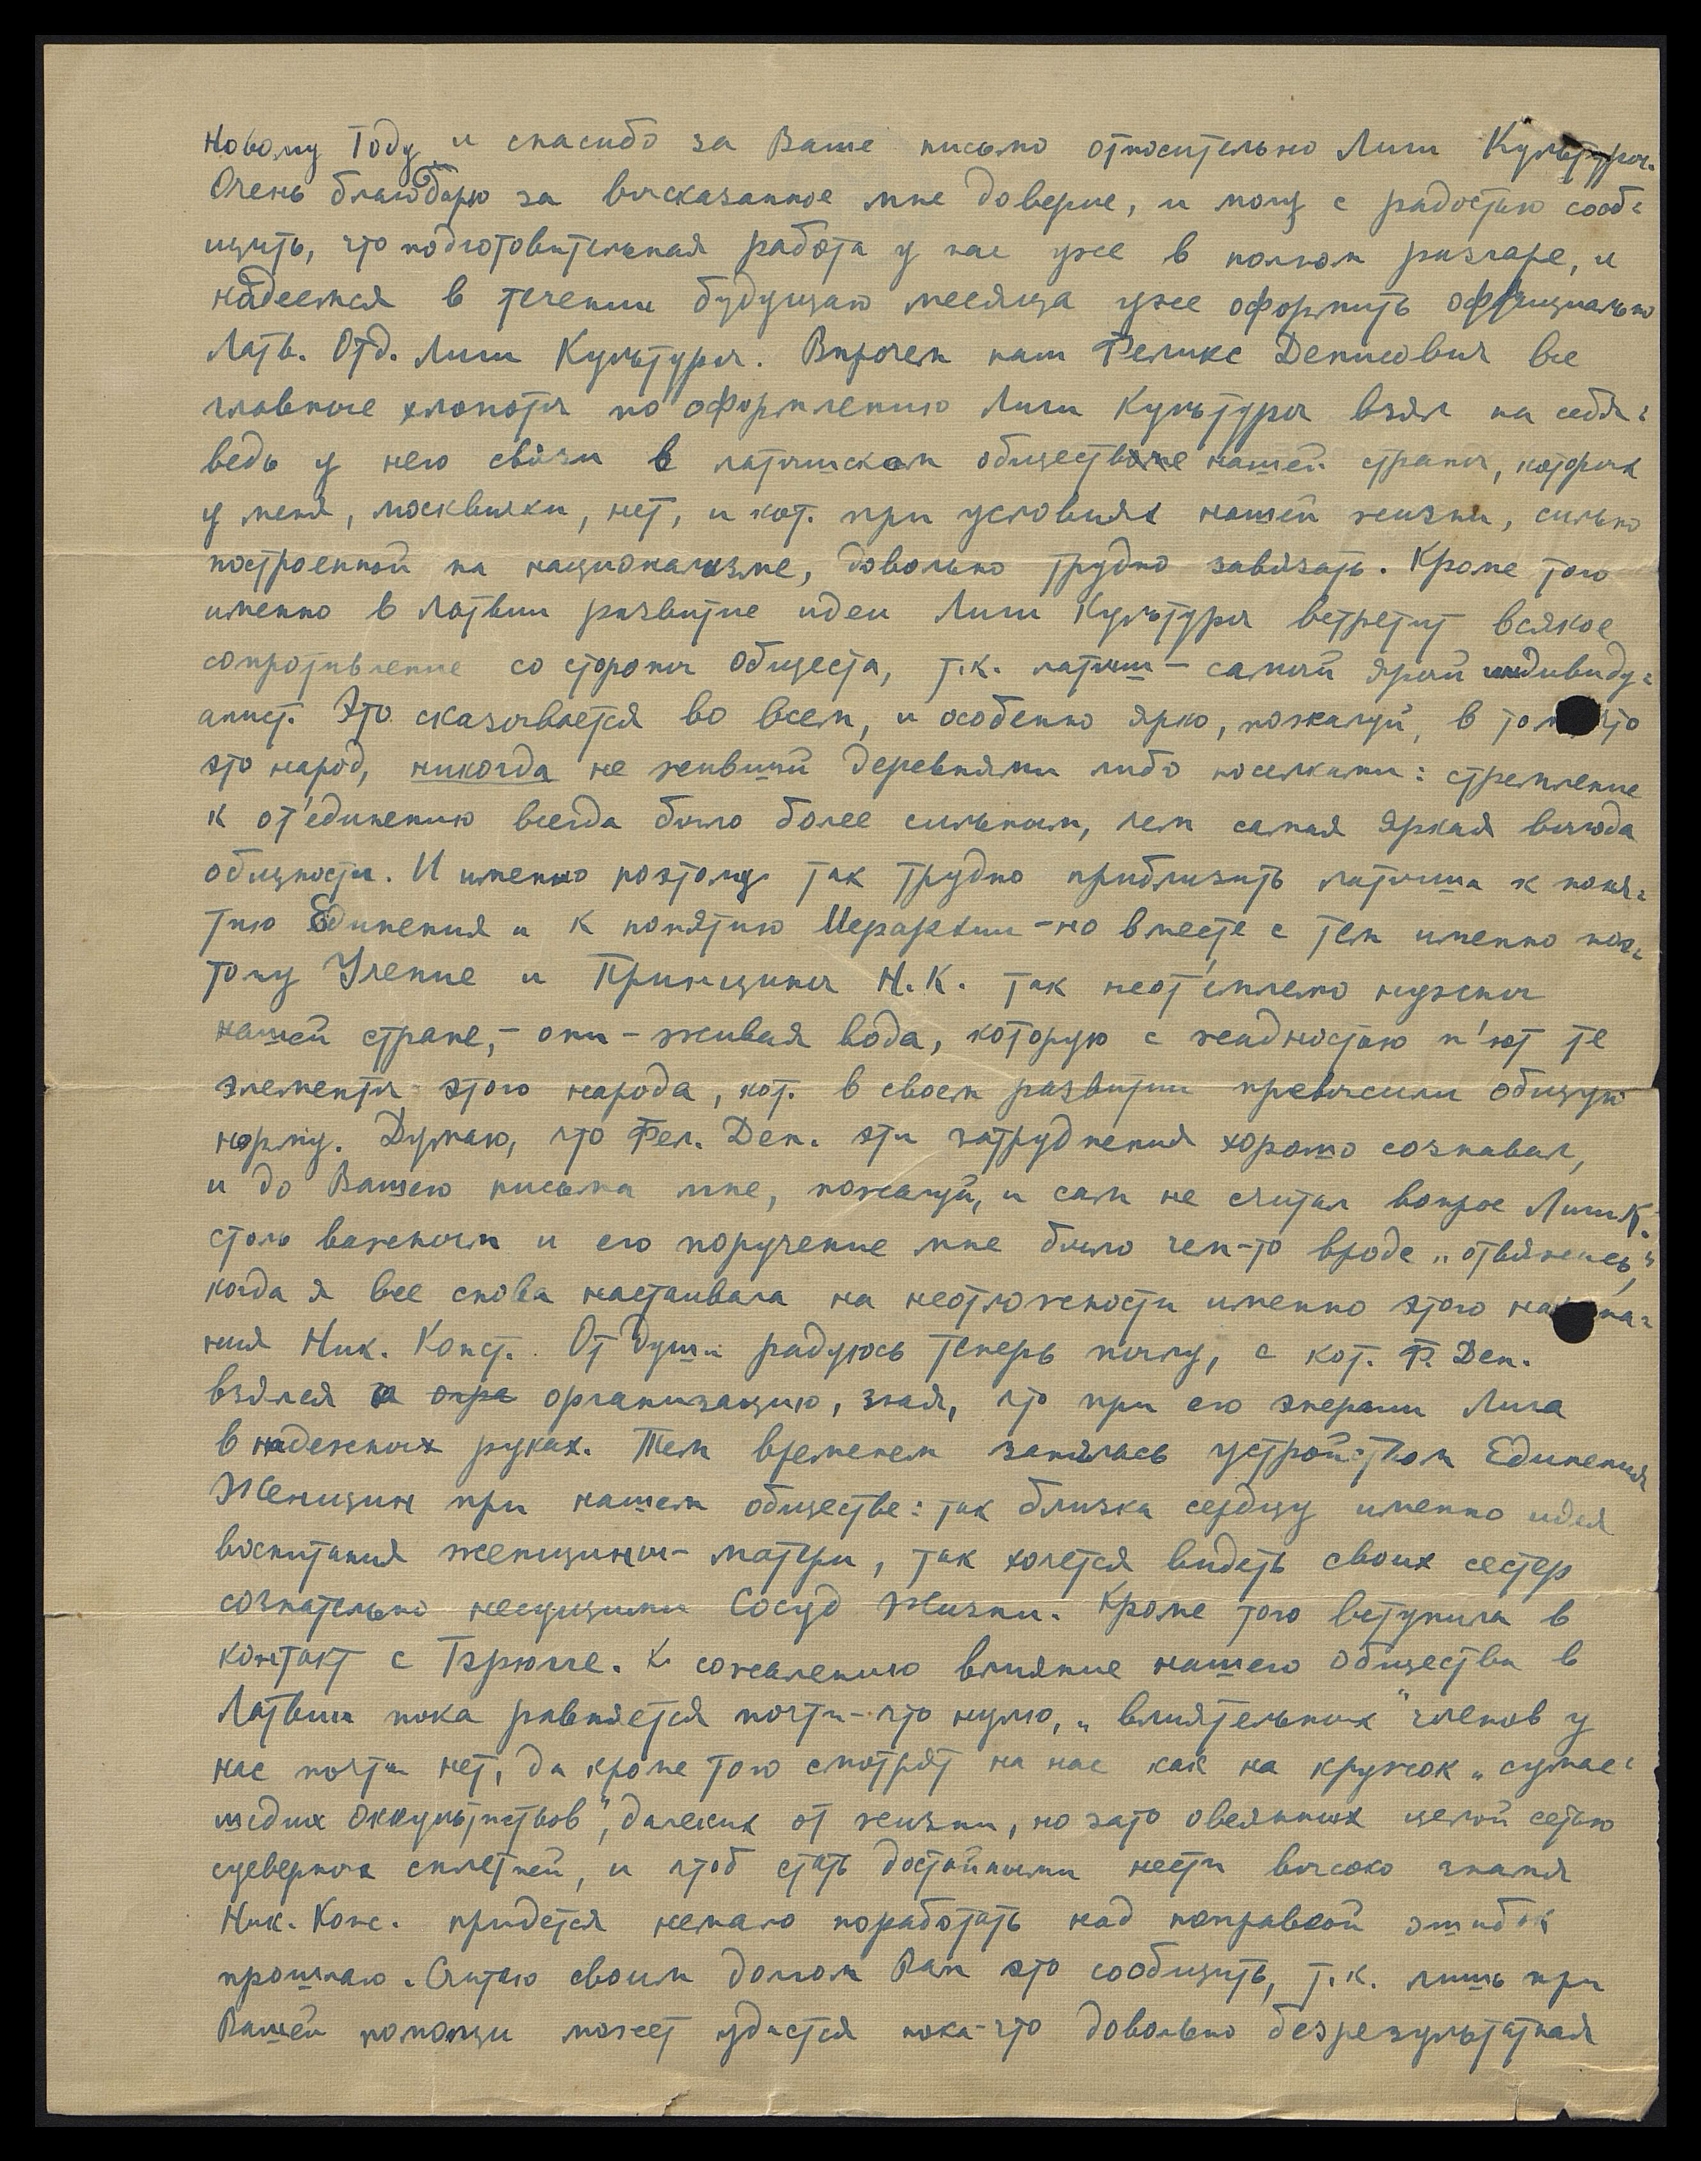 Новому Году и спасибо за Ваше письмо относительно Лиги Культуры.
Очень благодарю за высказанное мне доверие, и могу с радостью сооб-
щить, что подготовительная работа у нас уже в полном разгаре, и
надеемся в течении будущаго месяца уже оформить оффициально
Латв. Отд. Лиги Культуры. Впрочем наш Феликс Денисович все
главные хлопоты по оформлению Лиги Культуры взял на себя:
ведь у него связи в латышском обществе нашей страны, которых
у меня, москвички, нет, и кот. при условиях нашей жизни, сильно
построенной на национализме, довольно трудно завязать. Кроме того
именно в Латвии развитие идеи Лиги Культуры встретит всякое
сопротивление со стороны общеста, т.к. латыш – самый ярый индивиду-
алист. Это сказывается во всем, и особенно ярко, пожалуй, в том что
это народ, никогда не живший деревнями либо поселками: стремление
к от'единению всегда было более сильным, чем самая яркая выгода
общности. И именно поэтому так трудно приблизить латыша к поня-
тию Единения и к понятию Иерархии – но вместе с тем именно поэ-
тому Учение и Принципы Н.К. так неот'емлемо нужны
нашей стране, – они – живая вода, которую с жадностью п'ют те
элементы этого народа, кот. в своем развитии превысили общую
норму. Думаю, что Фел. Ден. эти затруднения хорошо сознавал,
и до Вашего письма мне, пожалуй, и сам не считал вопрос Лиги К.
столь важным и его поручение мне было чем-то вроде „отвяжись",
когда я все снова настаивала на неотложности именно этого начина-
ния Ник. Конст. От души радуюсь теперь пылу, с кот. Ф. Ден.
взялся за орга организацию, зная, что при его энергии Лига
в надежных руках. Тем временем занялась устройством Единения
Женщин при нашем обществе: так близка сердцу именно идея
воспитания женщины – матери, так хочется видеть своих сестер
сознательно несущими Сосуд Жизни. Кроме того вступила в
контакт с Бэрюгге. К сожалению влияние нашего общества в
Латвии пока равняется почти-что нулю, „влиятельных" членов у
нас почти нет, да кроме того смотрят на нас как на кружок „сумас-
шедших оккультистов", далеких от жизни, но зато овеянных целой сетью
суеверных сплетней, и чтоб стать достойными нести высоко знамя
Ник. Конс. придется немало поработать над поправкой ошибок
прошлаго. Считаю своим долгом Вам это сообщить, т.к. лишь при
Вашей помощи может удастся пока-что довольно безрезультатная